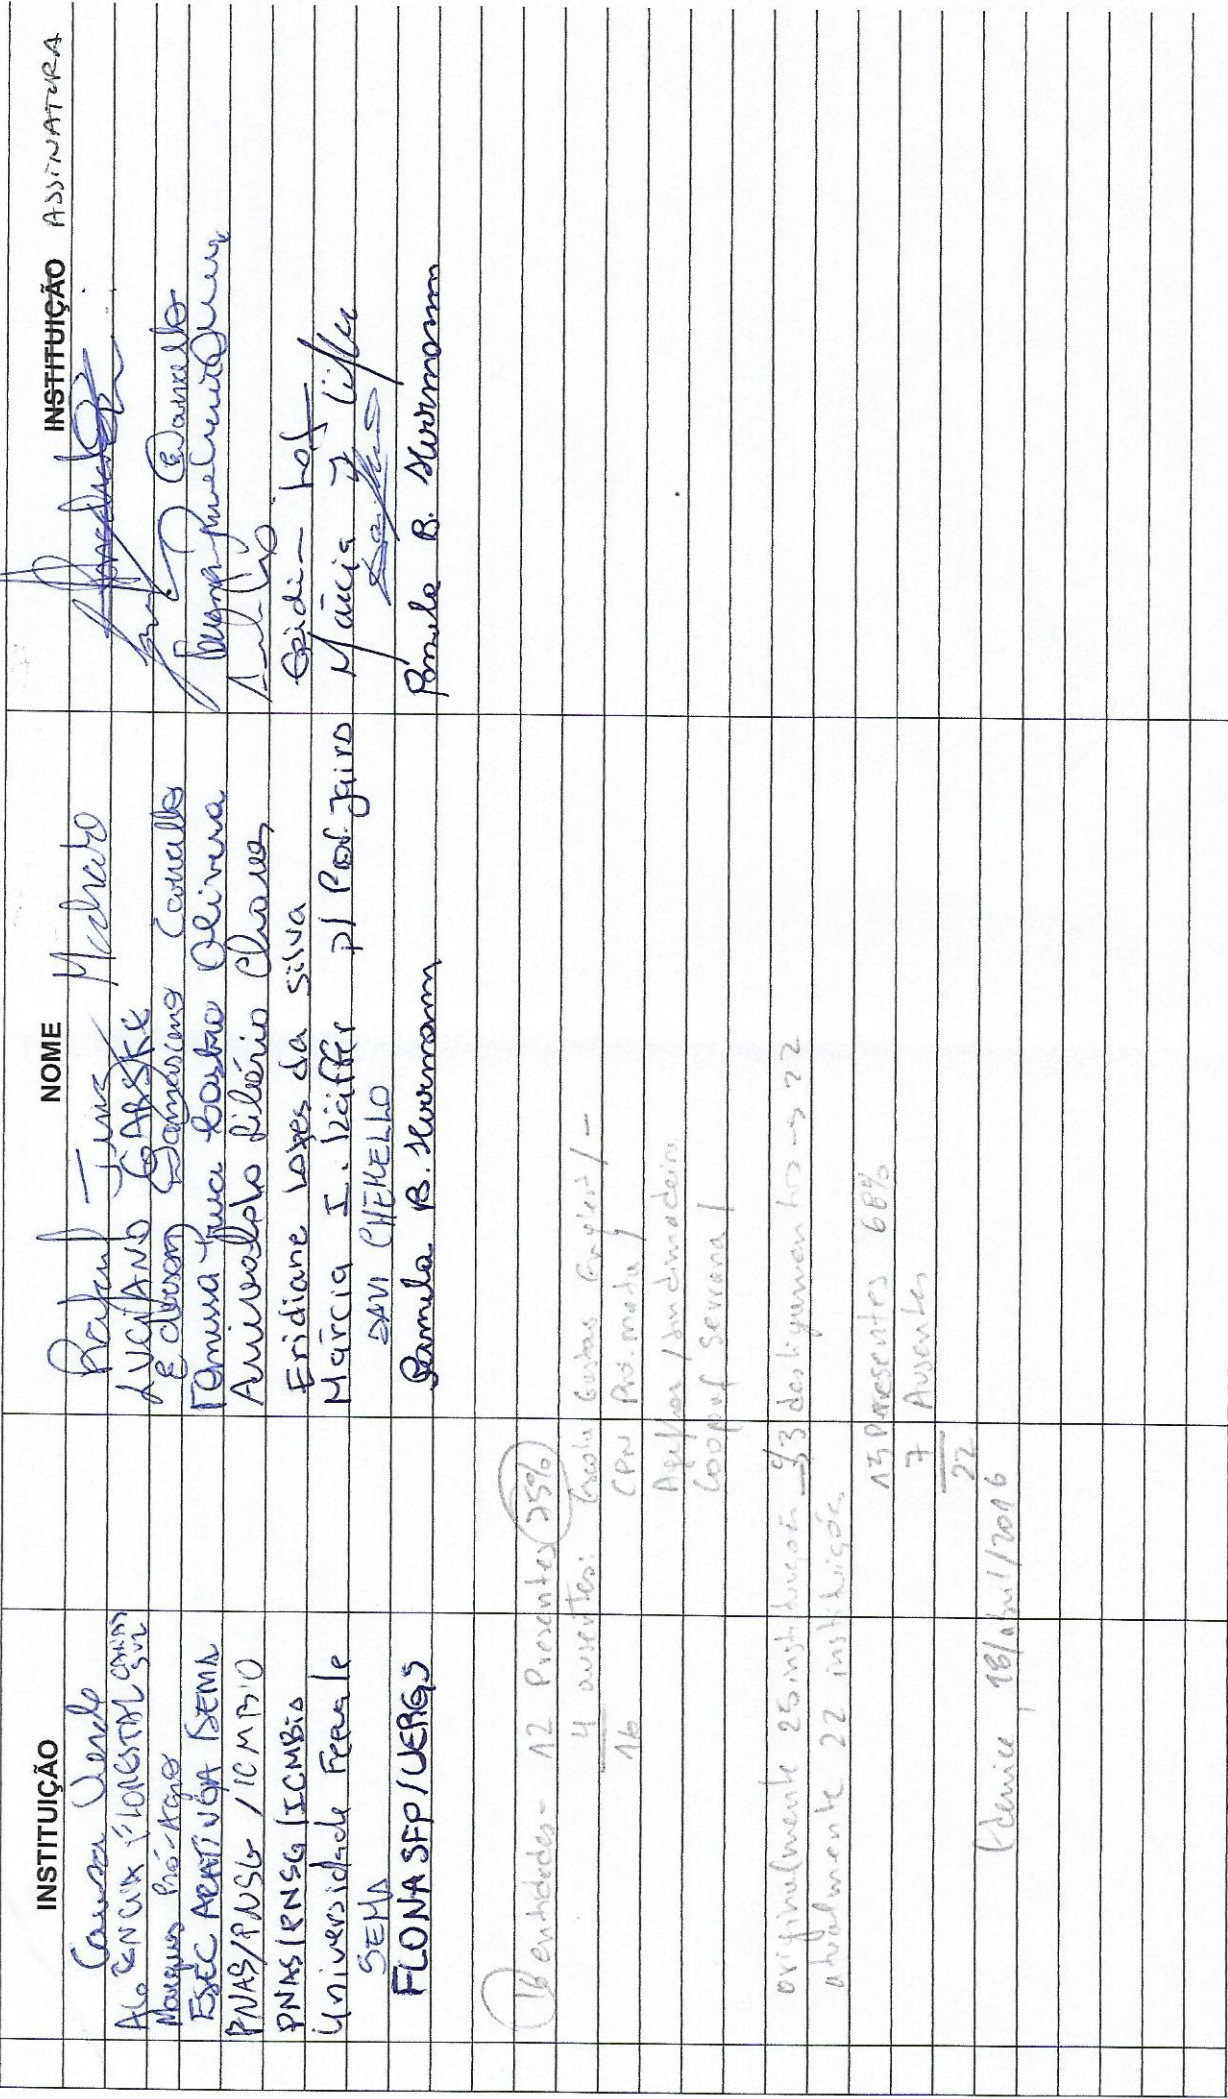 INSTITUIÇÃO NOME INSTITUIÇÃO ASSINATURA
Causa Verde Rafael Machado
FLORESTAL LUCIANO GARSKE
Marques Pró-Açao Ederson Camello
ESEC ARATINGA SEMA Castro Oliveira
PNAS/PNSG / ICMBIO Arivaldo Libério Chaves
PNAS/PNSG/ICMBio Eridiane Lopes da Silva
Universidade Feevale Márcia I. Käffer p/ Prof. Jairo Márcia I Käffer
SEMA DAVI CHEMELLO
FLONA SFP/UERGS Pamela B. Hermann Pamela B. Hermann
16 entidades - 12 Presentes 75%
4 ausentes:
16 CPN Pró-mata
Agaflor / Sindimadeira
Coopaf Serrana
originalmente 25 instituições 3 desligamentos → 22
atualmente 22 instituições
15 Presentes 68%
7 Ausentes
22
18/abril/2016